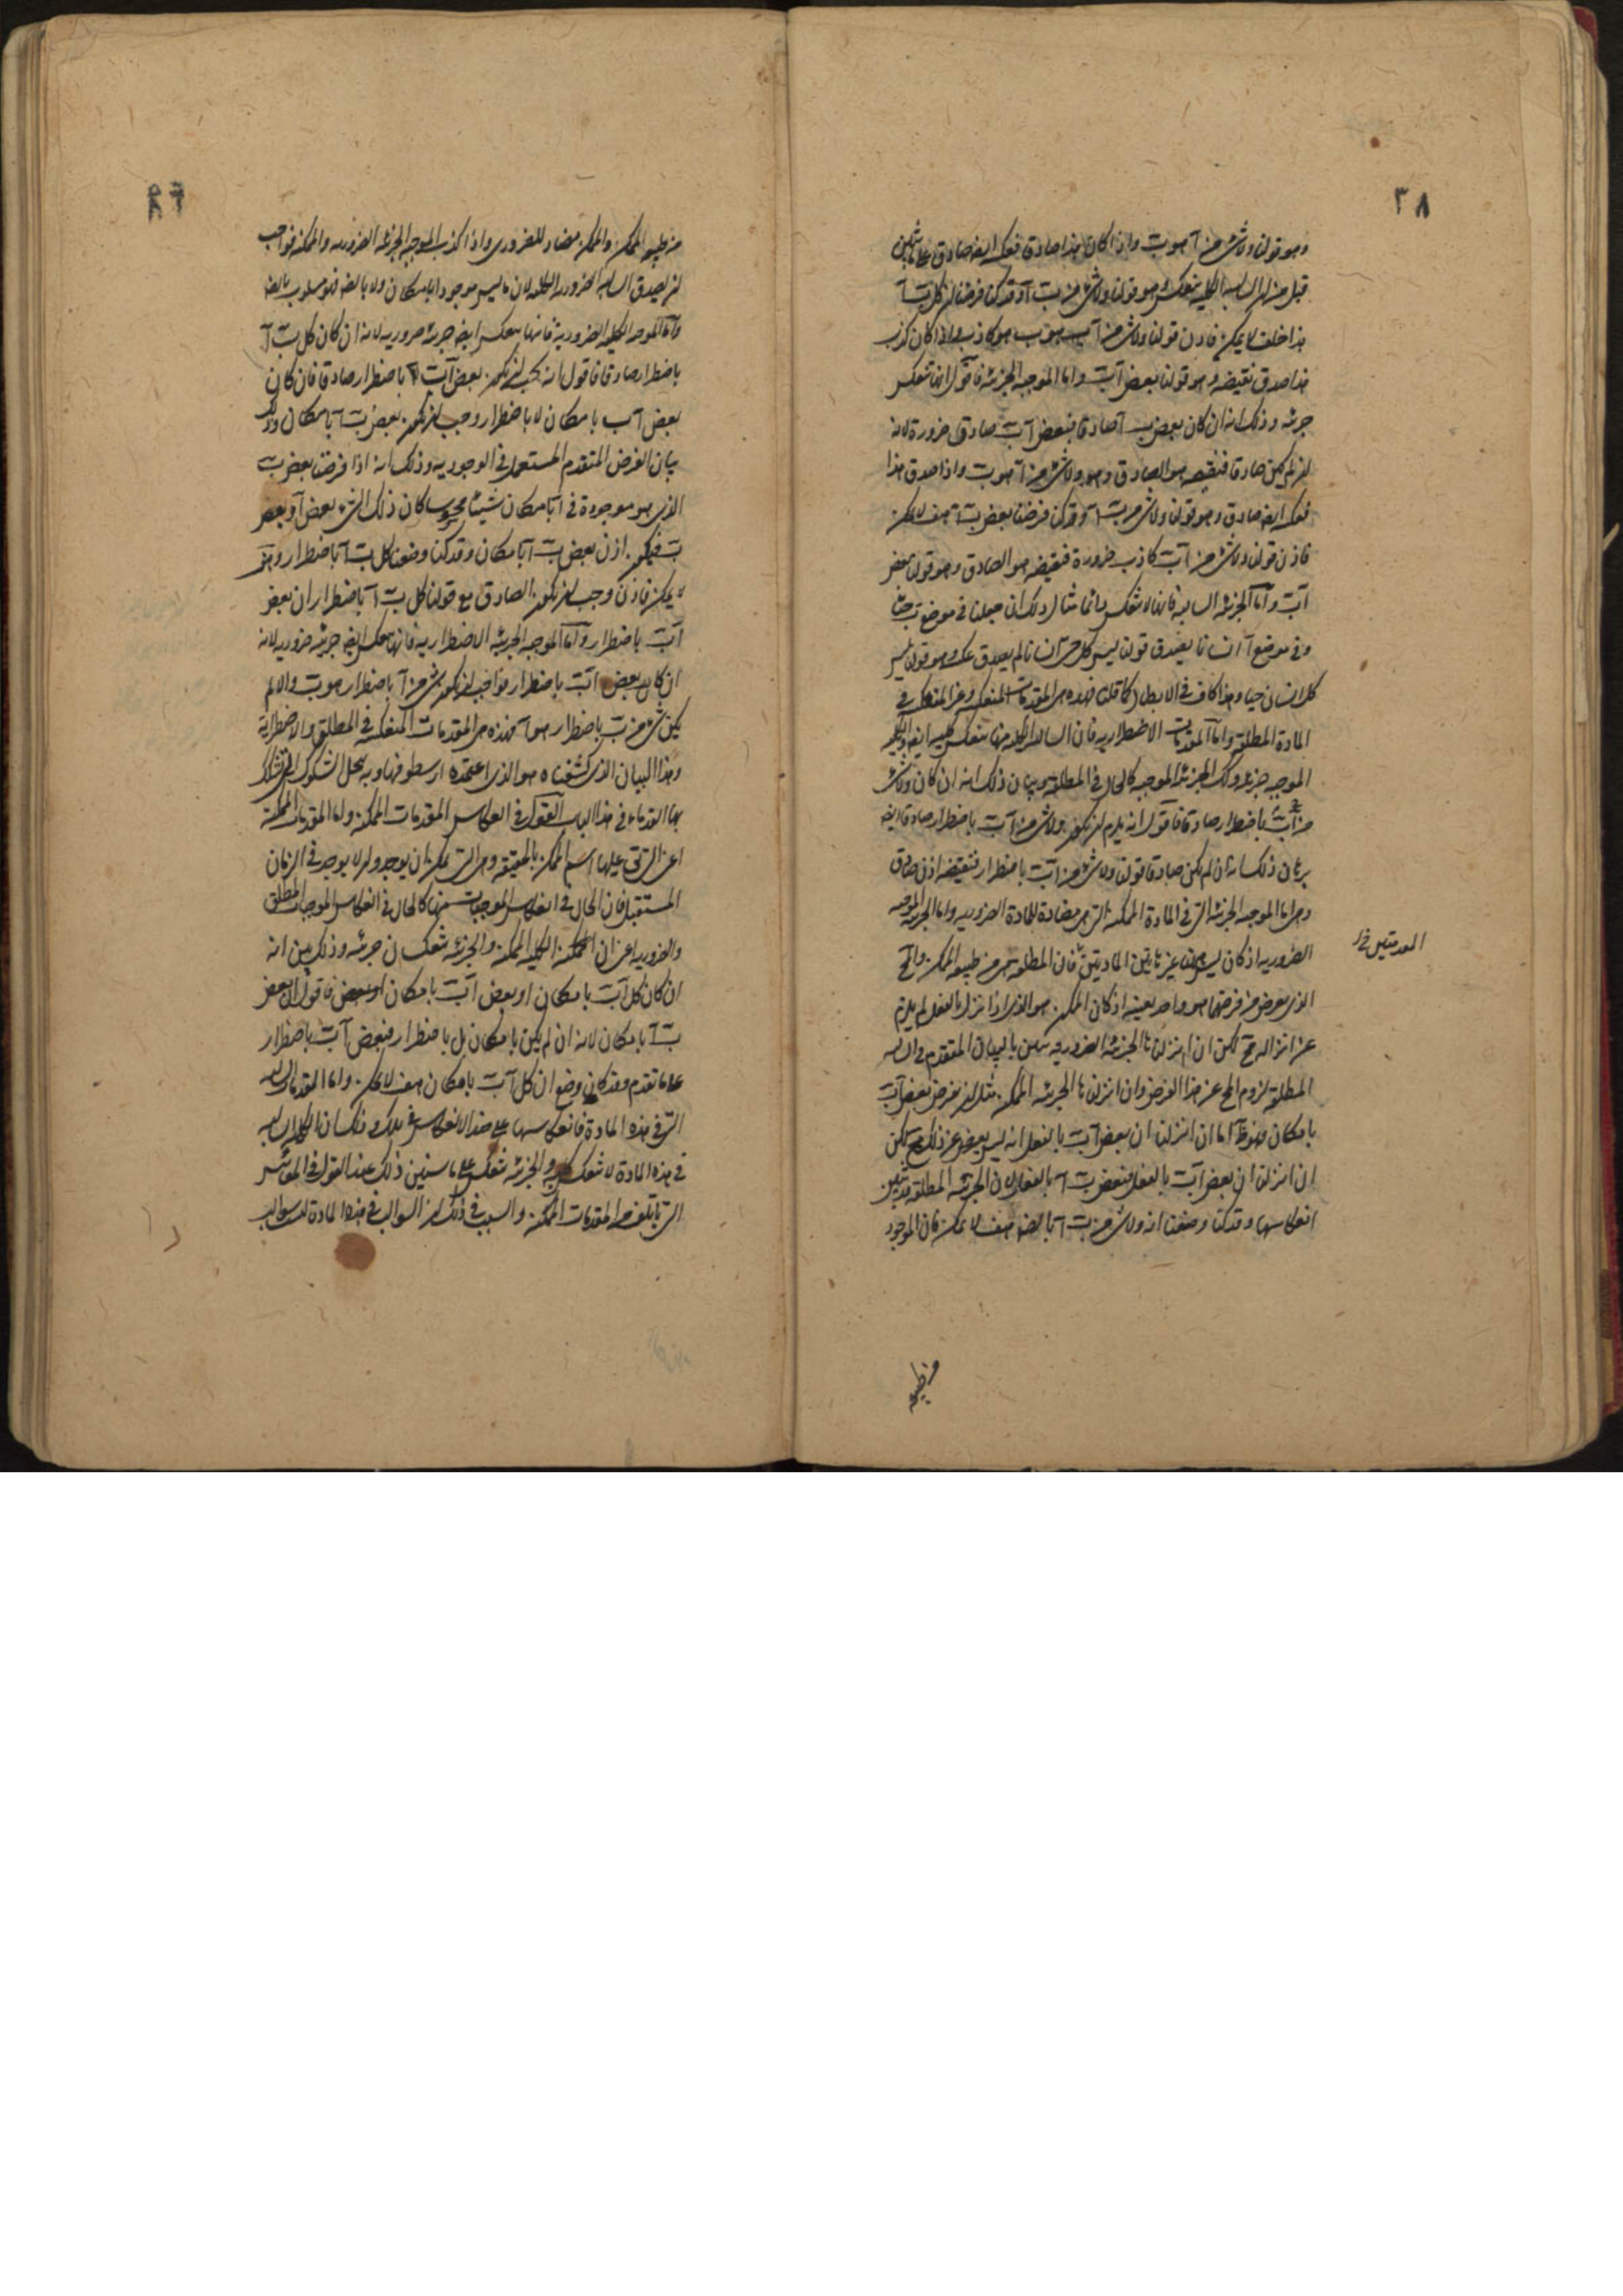 ٣٨
وهو قولنا ولا شئ من آ هو ب واذا كان هذا صادقا فعكسه ايضا صادق على ما تبين
قبل من ان السالبة الكلية تنعكس وهو قولنا ولا شئ من ب آ وقد كنا فرضنا ان كل ب آ
هذا خلف لا يمكن فاذن قولنا ولا شئ من آ ب هو كاذب واذا كان كذب
هذا صدق نقيضه وهو قولنا بعض آ ب واما الموجبة الجزئية فاقول انها تنعكس
جزئية وذلك انه ان كان بعض ب آ صادقا فبعض آ ب صادق ضرورة لانه
ان لم يكن صادقا فنقيضه هو الصادق وهو ولا شئ من آ هو ب واذا صدق هذا
فعكسه ايضا صادق وهو قولنا ولا شئ من ب آ وقد كنا فرضنا بعض ب آ هف لا يمكن
فاذن قولنا ولا شئ من آ ب كاذب ضرورة فنقيضه هو الصادق وهو قولنا بعض
آ ب واما الجزئية السالبة فانها لا تنعكس دائما مثال ذلك ان جعلنا في موضع ب حيا
وفي موضع آ انسانا يصدق قولنا ليس كل حي انسانا لم يصدق عكسه وهو قولنا ليس
كل انسان حيا وهذا كاف في الابطال كما قلنا فهذه هي المقدمات المنعكسة وغير المنعكسة في
المادة المطلقة واما المقدمات الاضطرارية فان السالبة الكلية منها تنعكس كلية ايضا والكلية
الموجبة جزئية وكذلك الجزئية الموجبة كالحال في المطلقة وبيان ذلك انه ان كان ولا شئ
من آ ب باضطرار صادقا فاقول انه يلزم ان يكون ولا شئ من آ ب باضطرار صادقا ايضا
برهان ذلك انه ان لم يكن صادقا قولنا ولا شئ من آ ب باضطرار فنقيضه اذن صادق
وهي اما الموجبة الجزئية التي في المادة الممكنة التي هي مضادة للمادة الضرورية واما الجزئية الموجبة
الضرورية اذ كان ليس هنا غير هاتين المادتين فان المطلقة هي من طبيعة الممكن والمح
الذي يعرض من فرضهما هو واحد بعينه اذ كان الممكن هو الذي اذا انزل بالفعل لم يلزم
عن انزاله مح لكن ان انزلنا الجزئية الضرورية تبين بالبيان المتقدم في السالبة
المطلقة لزوم المح عن هذا الفرض وان انزلنا الجزئية الممكنة مثل ان يفرض بعض آ ب
بامكان اما ان انزلنا ان بعض آ ب بالفعل انه ليس يعرض عن ذلك مح لكن
ان انزلنا ان بعض آ ب بالفعل فبعض ب آ بالفعل لان الجزئية المطلقة قد تبين
انعكاسها وقد كنا وضعنا انه ولا شئ من ب آ بالضرورة هف لا يمكن فان الموجود
من طبيعة
من طبيعة الممكن والممكن مضاد للضروري واذا كذب الموجبة الجزئية الضرورية والممكنة فواجب
ان يصدق السالبة الضرورية الكلية لان ما ليس موجودا بامكان ولا بالضرورة فهو مسلوب بالضرورة
واما الموجبة الكلية الضرورية فانها تنعكس ايضا جزئية ضرورية لانه ان كان كل ب آ
باضطرار صادقا فاقول انه يجب ان يكون بعض آ ب باضطرار صادقا فان كان
بعض آ ب بامكان لا باضطرار وجب ان يكون بعض ب آ بامكان وذلك
ببيان الفرض المتقدم المستعمل في الوجودية وذلك انه اذا فرضنا بعض ب
الذي هو موجودة في آ بامكان شيئا محسوسا كان ذلك الشئ بعض آ وبعض
ب فيكون اذن بعض ب آ بامكان وقد كنا وضعنا كل ب آ باضطرار وهذا
لا يمكن فاذن وجب ان يكون الصادق مع قولنا كل ب آ باضطرار ان بعض
آ ب باضطرار واما الموجبة الجزئية الاضطرارية فانها تنعكس ايضا جزئية ضرورية لانه
ان كان بعض آ ب باضطرار فواجب ان يكون شئ من آ باضطرار هو ب والا لم
يكن شئ من ب باضطرار هو آ فهذه هي المقدمات المنعكسة في المطلق والاضطرارية
وهذا البيان الذي كشفناه هو الذي اعتمده ارسطو فيها وبه تنحل الشكوك التي شكك
بها القدماء في هذا الباب القول في انعكاس المقدمات الممكنة واما المقدمات الممكنة
اعني التي تقع عليها اسم الممكن بالحقيقة وهي التي يمكن ان يوجد وان لا يوجد في الزمان
المستقبل فان الحال في انعكاس الموجبات منها كالحال في انعكاس الموجبات المطلق
والضرورية اعني ان الممكنة الكلية الممكنة والجزئية تنعكسان جزئية وذلك بين انه
ان كان كل آ ب بامكان او بعض آ ب بامكان فاقول ان بعض
ب آ بامكان لانه ان لم يكن بامكان بل باضطرار فبعض آ ب باضطرار
على ما تقدم وقد كان وضع ان كل آ ب بامكان هف لا يمكن واما المقدمات السالبة
التي في هذه المادة فانعكاسها على ضد الانعكاس في تلك وذلك ان الكلية السالبة
في هذه المادة لا تنعكس والجزئية تنعكس على ما سنبين ذلك عند القول في المقاييس
التي تأتلف من المقدمات الممكنة والسبب في ذلك ان السوالب في هذه المادة ليست سوالب